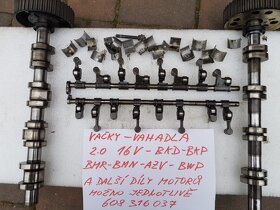 VAČKY - VAHADLA
2.0 16V - BKD - BKP
BMR - BMN - AZV - BWD
A DALŠÍ DÍLY MOTORŮ
MOŽNO JEDLOTLIVĚ
608 316 037